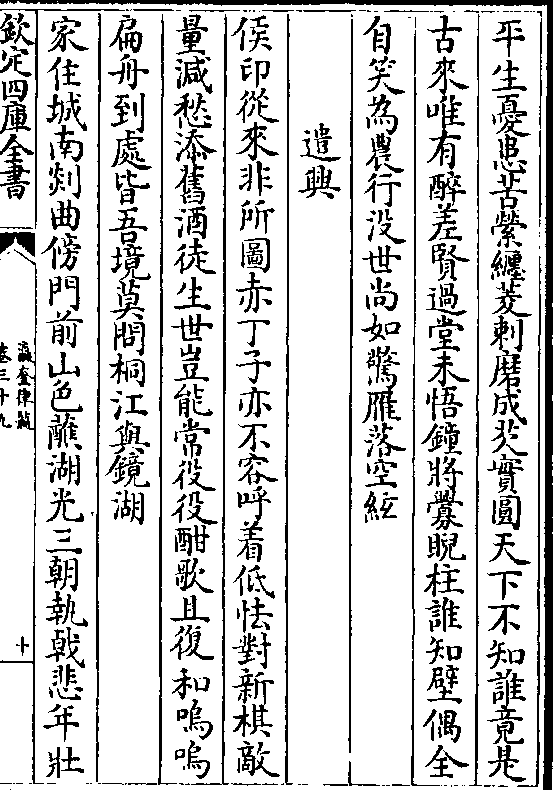 平生憂患苦縈纏菱刺磨成芡實圓天下不知誰竟是
古來唯有醉差賢過堂未悟鐘將釁睨柱誰知璧偶全
自笑為農行没世尚如驚雁落空絃
遣興
侯印從來非所圖赤丁子亦不容呼着低怯對新棋敵
量減愁添舊酒徒生世豈能常役役酣歌且復和嗚嗚
扁舟到處皆吾境莫問桐江與鏡湖
家住城南剡曲傍門前山色蘸湖光三朝執戟悲年壯
欽定四庫全書
瀛奎律髓
卷三十九
十